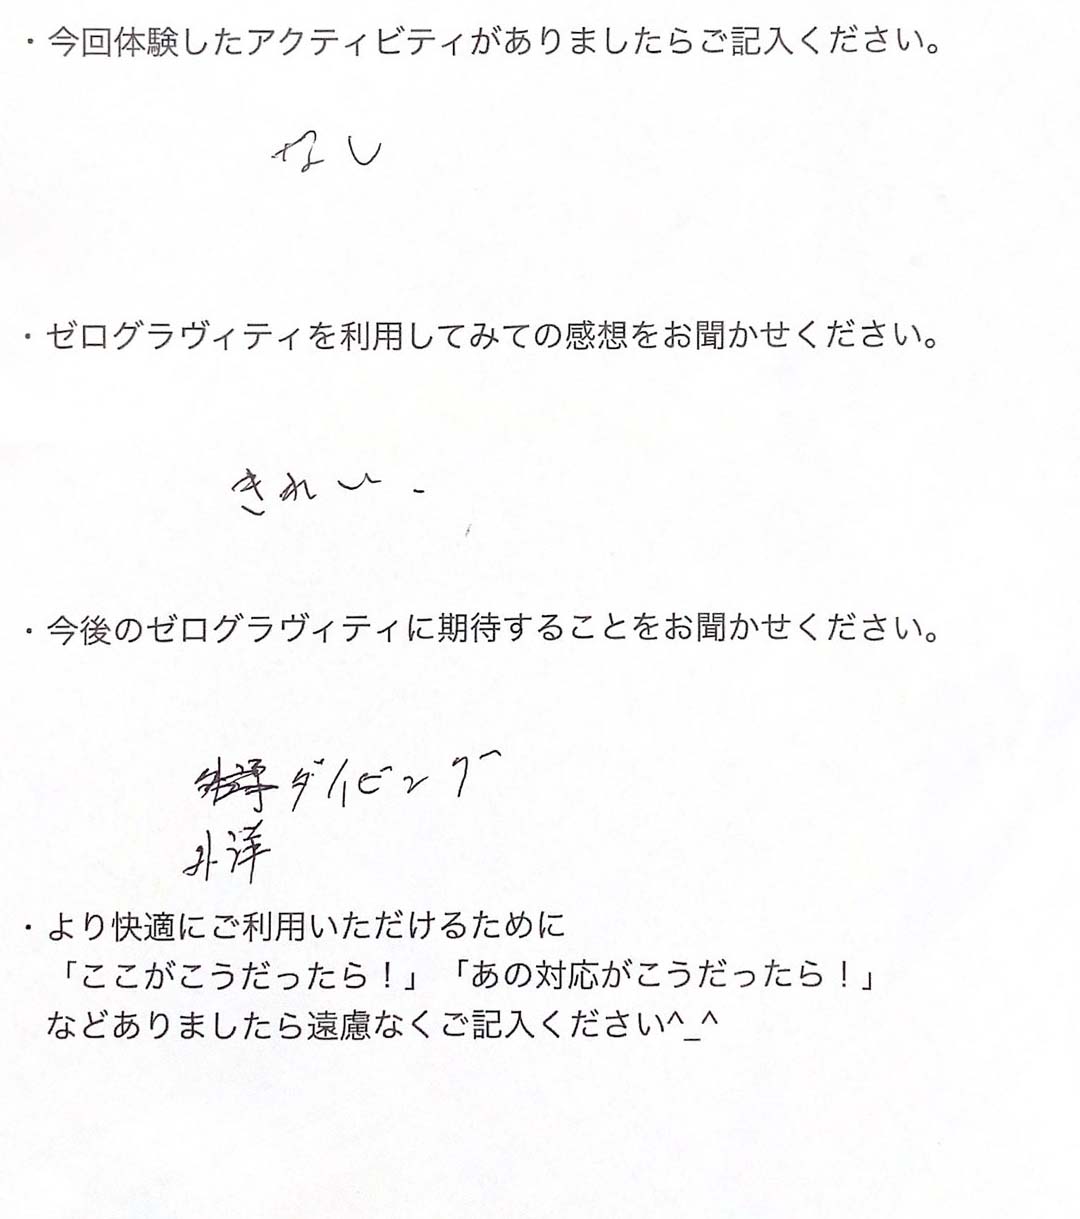 ・今回体験したアクティビティがありましたらご記入ください。
なし
・ゼログラヴィティを利用してみての感想をお聞かせください。
きれい.
・今後のゼログラヴィティに期待することをお聞かせください。
ダイビング
外洋
・より快適にご利用いただけるために
「ここがこうだったら！」「あの対応がこうだったら！」
などありましたら遠慮なくご記入ください^_^